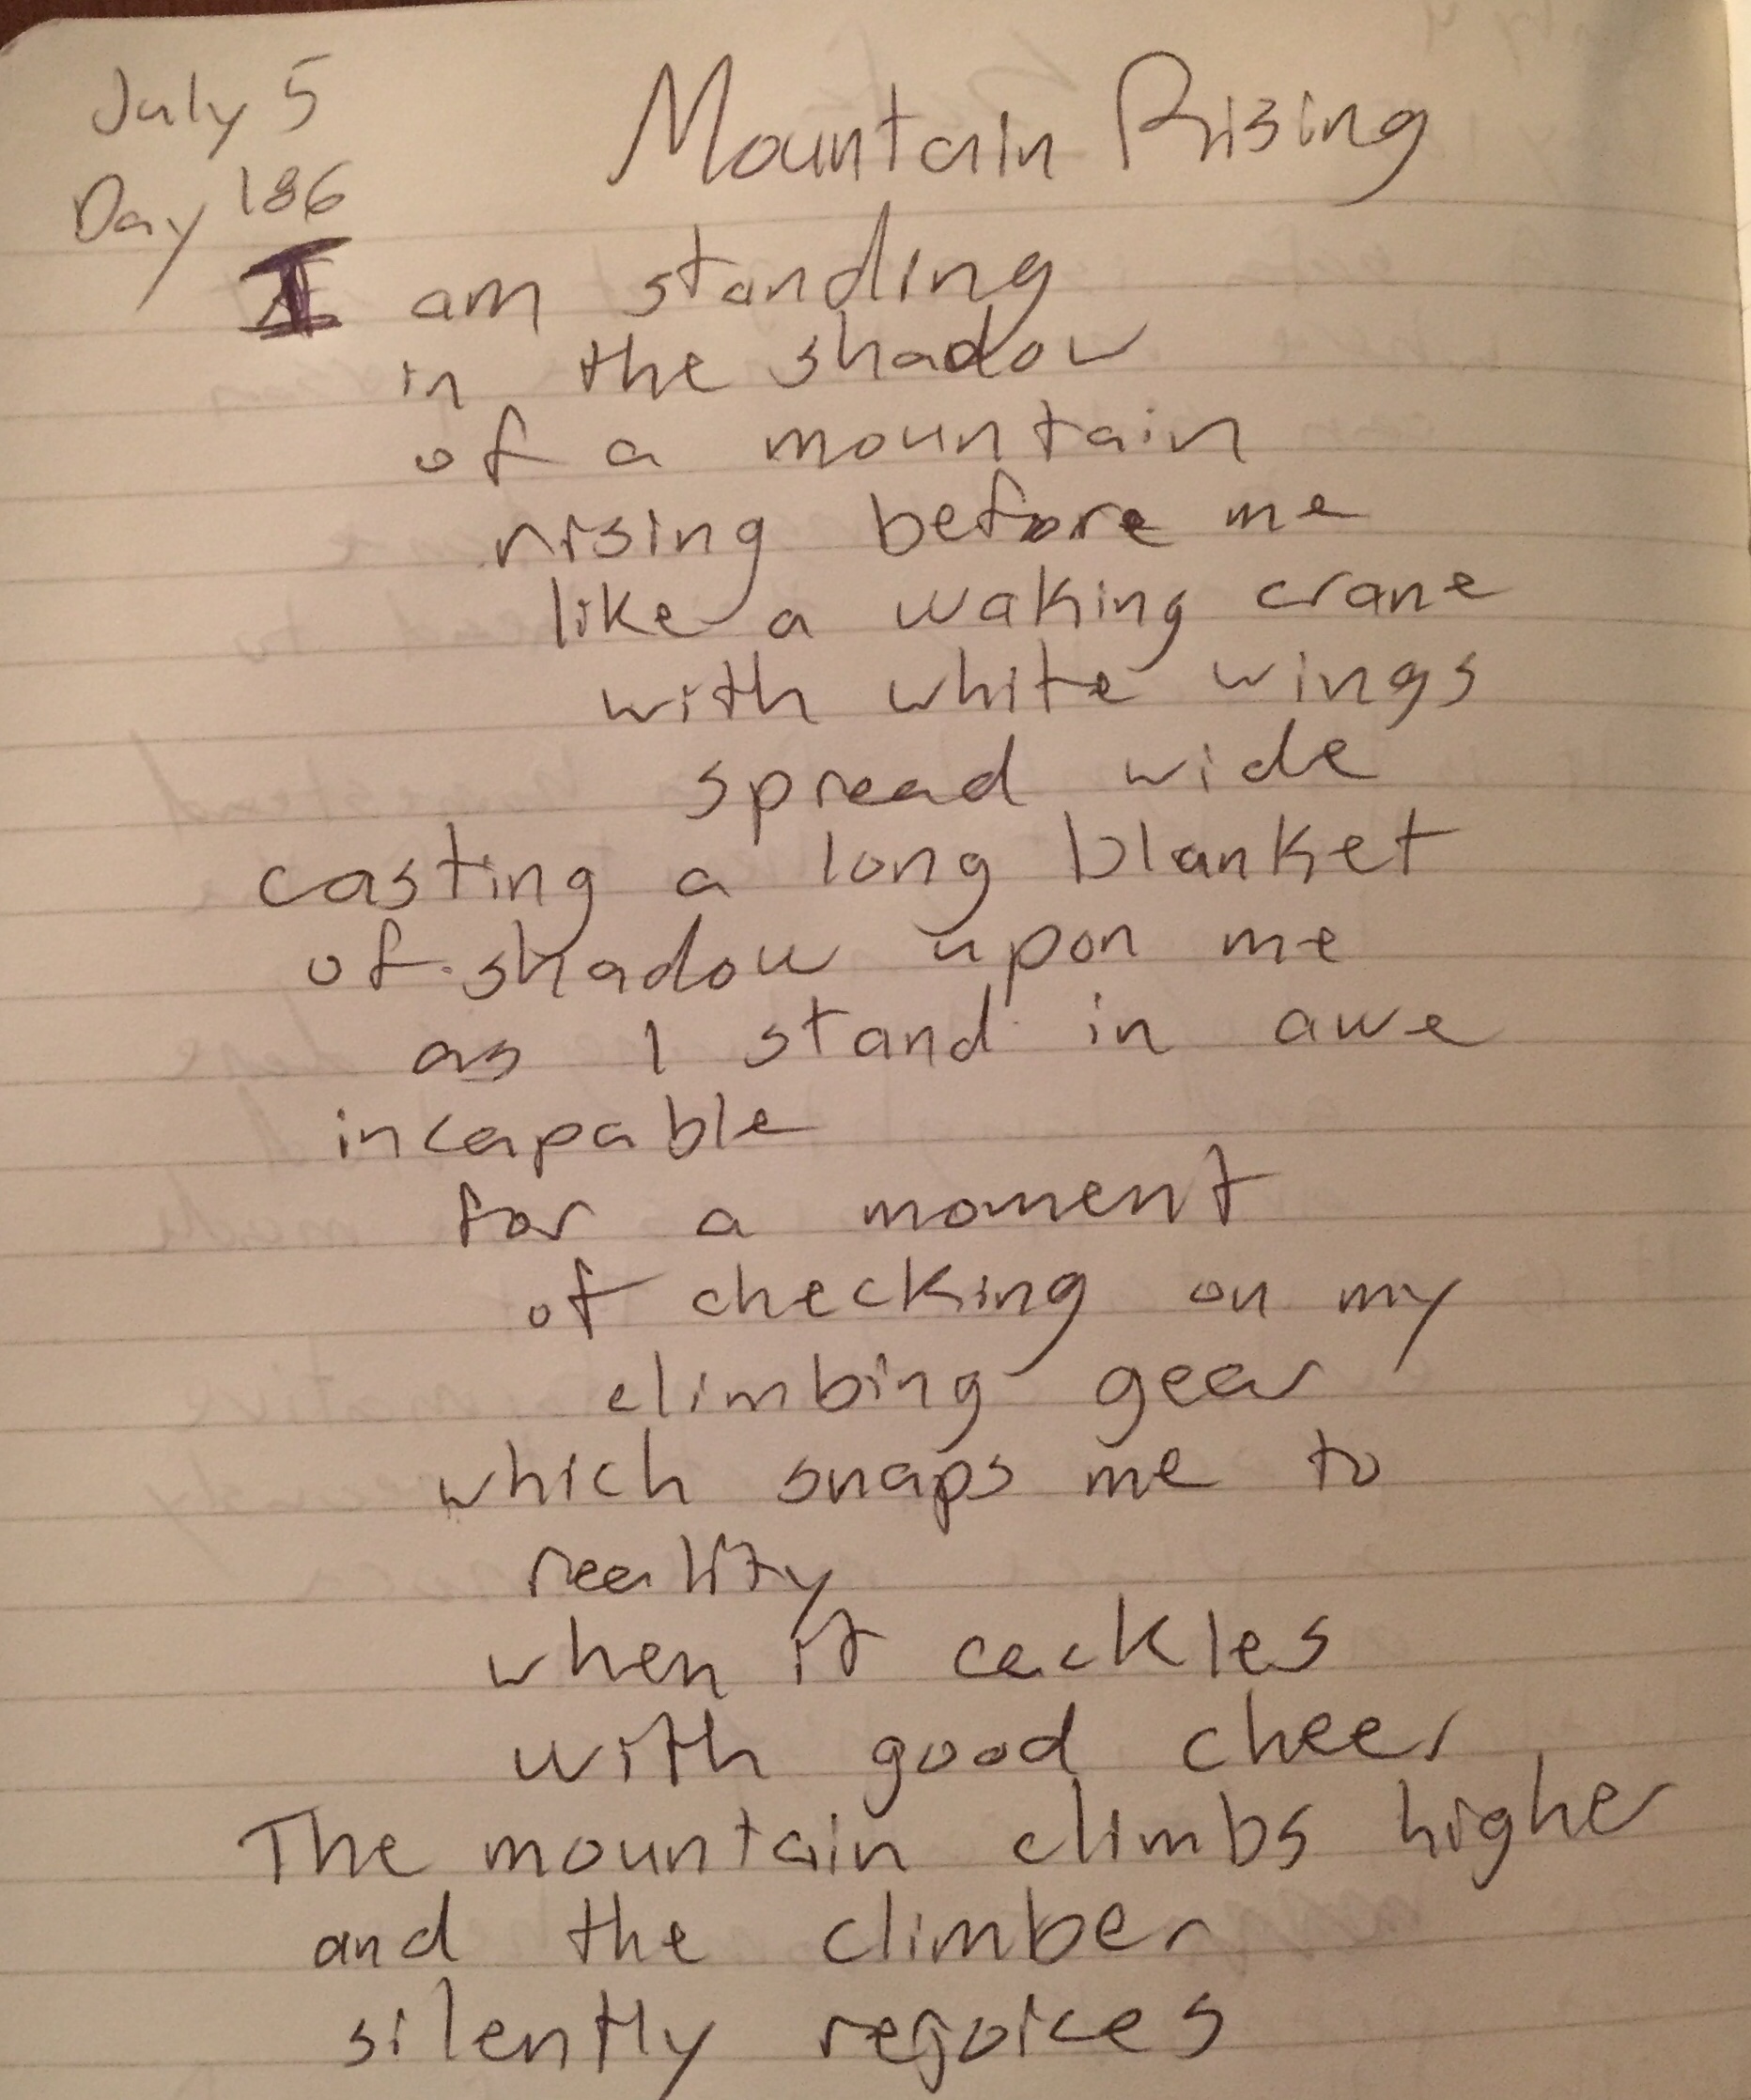 July 5
Day 186
Mountain Rising
I am standing
in the shadow
of a mountain
rising before me
like a waking crane
with white wings
spread wide
casting a long blanket
of shadow upon me
as I stand in awe
incapable
for a moment
of checking on my
climbing gear
which snaps me to
reality
when it cackles
with good cheer
The mountain climbs higher
and the climber
silently rejoices